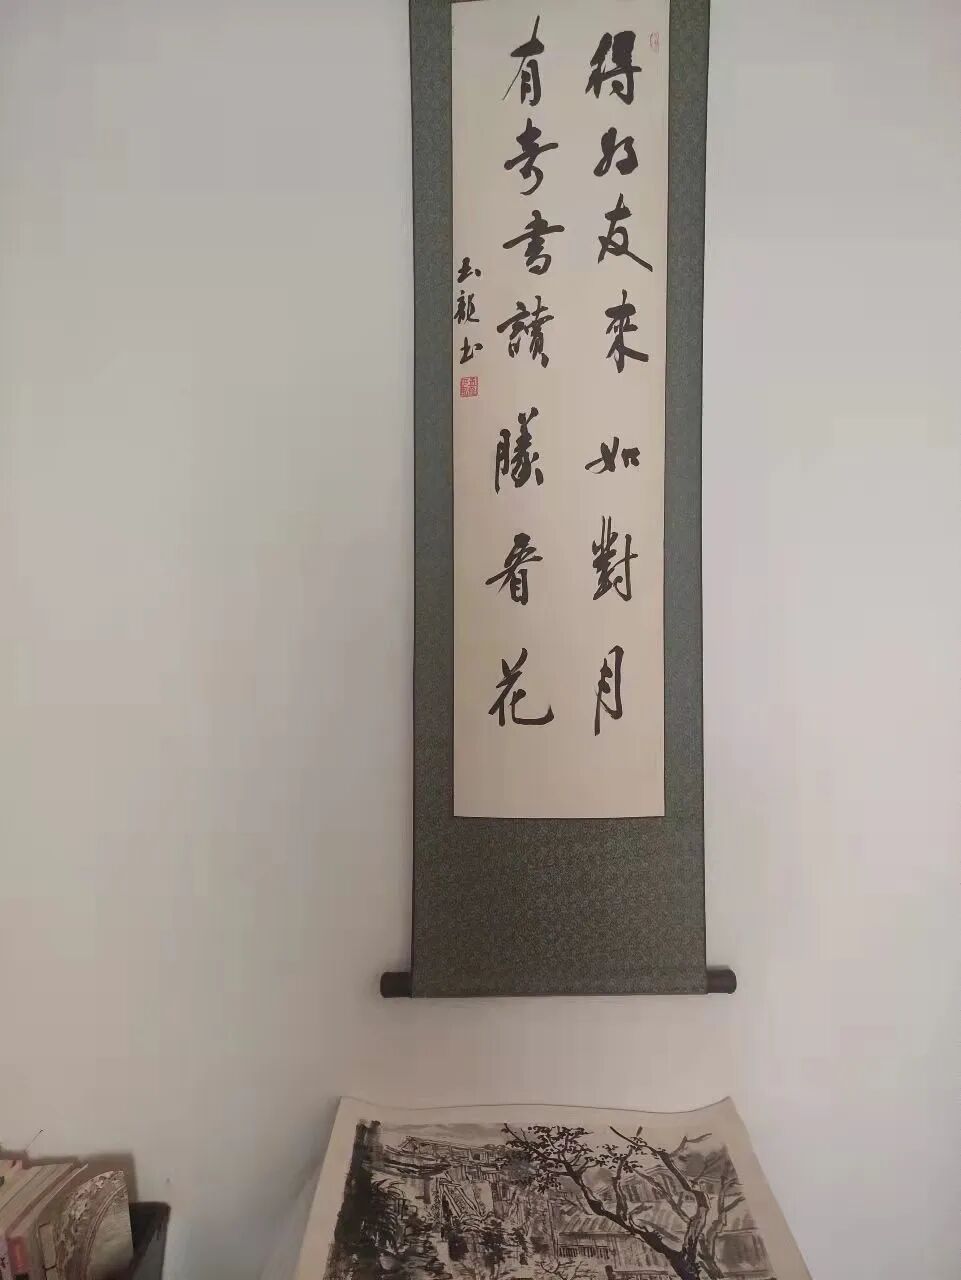 得好友来如對月
有奇書讀勝看花
玉龍书